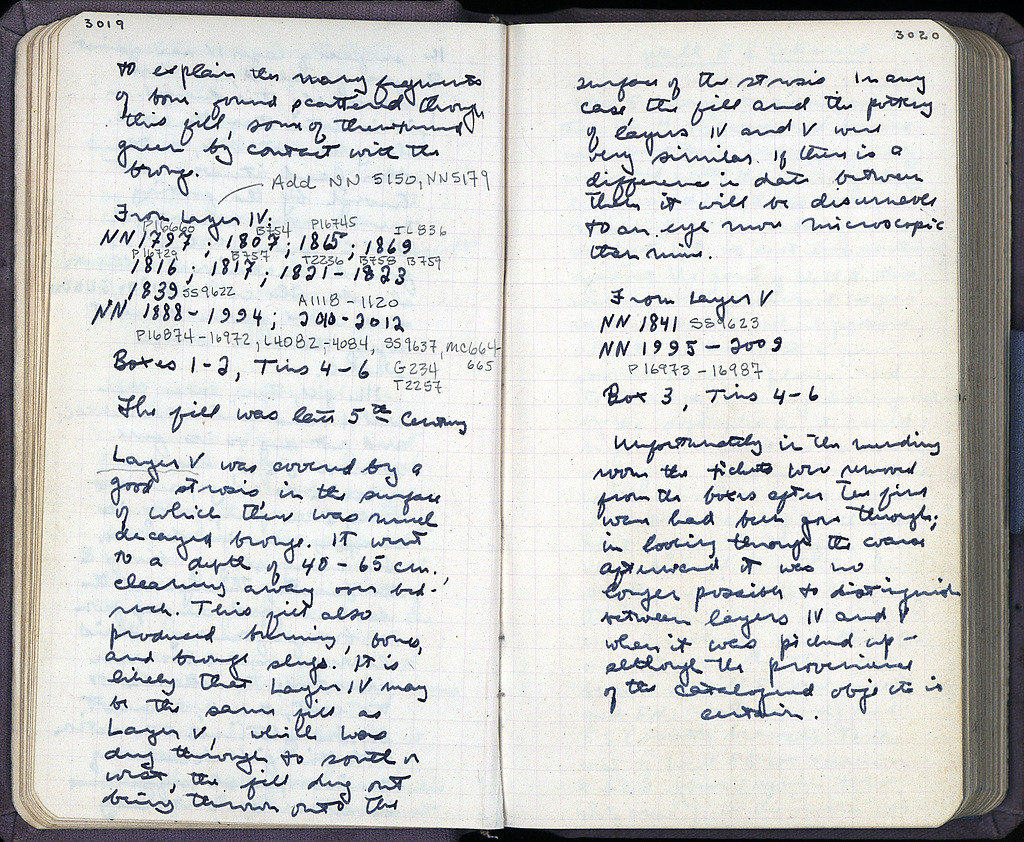 3019
to explain the many fragments
of bone found scattered through
this fill, some of them turned
green by contact with the
bronze.
Add NN 5150, NN5179
From Layer IV:
P16660 B754 P16745 IL836
NN 1797 ; 1807 ; 1865 ; 1869
P16729 B757 T2236 B758 B759
1816 ; 1817 ; 1821-1823
1839 SS9622
A1118-1120
NN 1888-1994 ; 2010-2012
P16874-16972, L4082-4084, SS9637, MC664-
665
Boxes 1-2, Tins 4-6 G234
T2257
The fill was late 5th Century
Layer V was covered by a
good strosis, in the surface
of which there was much
decayed bronze. It went
to a depth of 40-65 cm.,
clearing away over bed-
rock. This fill also
produced burning, bones,
and bronze slugs. It is
likely that Layer IV may
be the same fill as
Layer V, which was
dug through to south or
west, the fill dug out
being thrown onto the
3020
surface of the strosis. In any
case the fill and the pottery
of layers IV and V were
very similar. If there is a
difference in date between
them it will be discernable
to an eye more microscopic
than mine.
From Layer V
NN 1841 SS9623
NN 1995-2009
P16973-16987
Box 3, Tins 4-6
Unfortunately in the mending
room the tickets were removed
from the boxes after the fine
ware had been gone through;
in looking through the coarse
afterward it was no
longer possible to distinguish
between layers IV and V
when it was picked up -
although the provenience
of the catalogued objects is
certain.